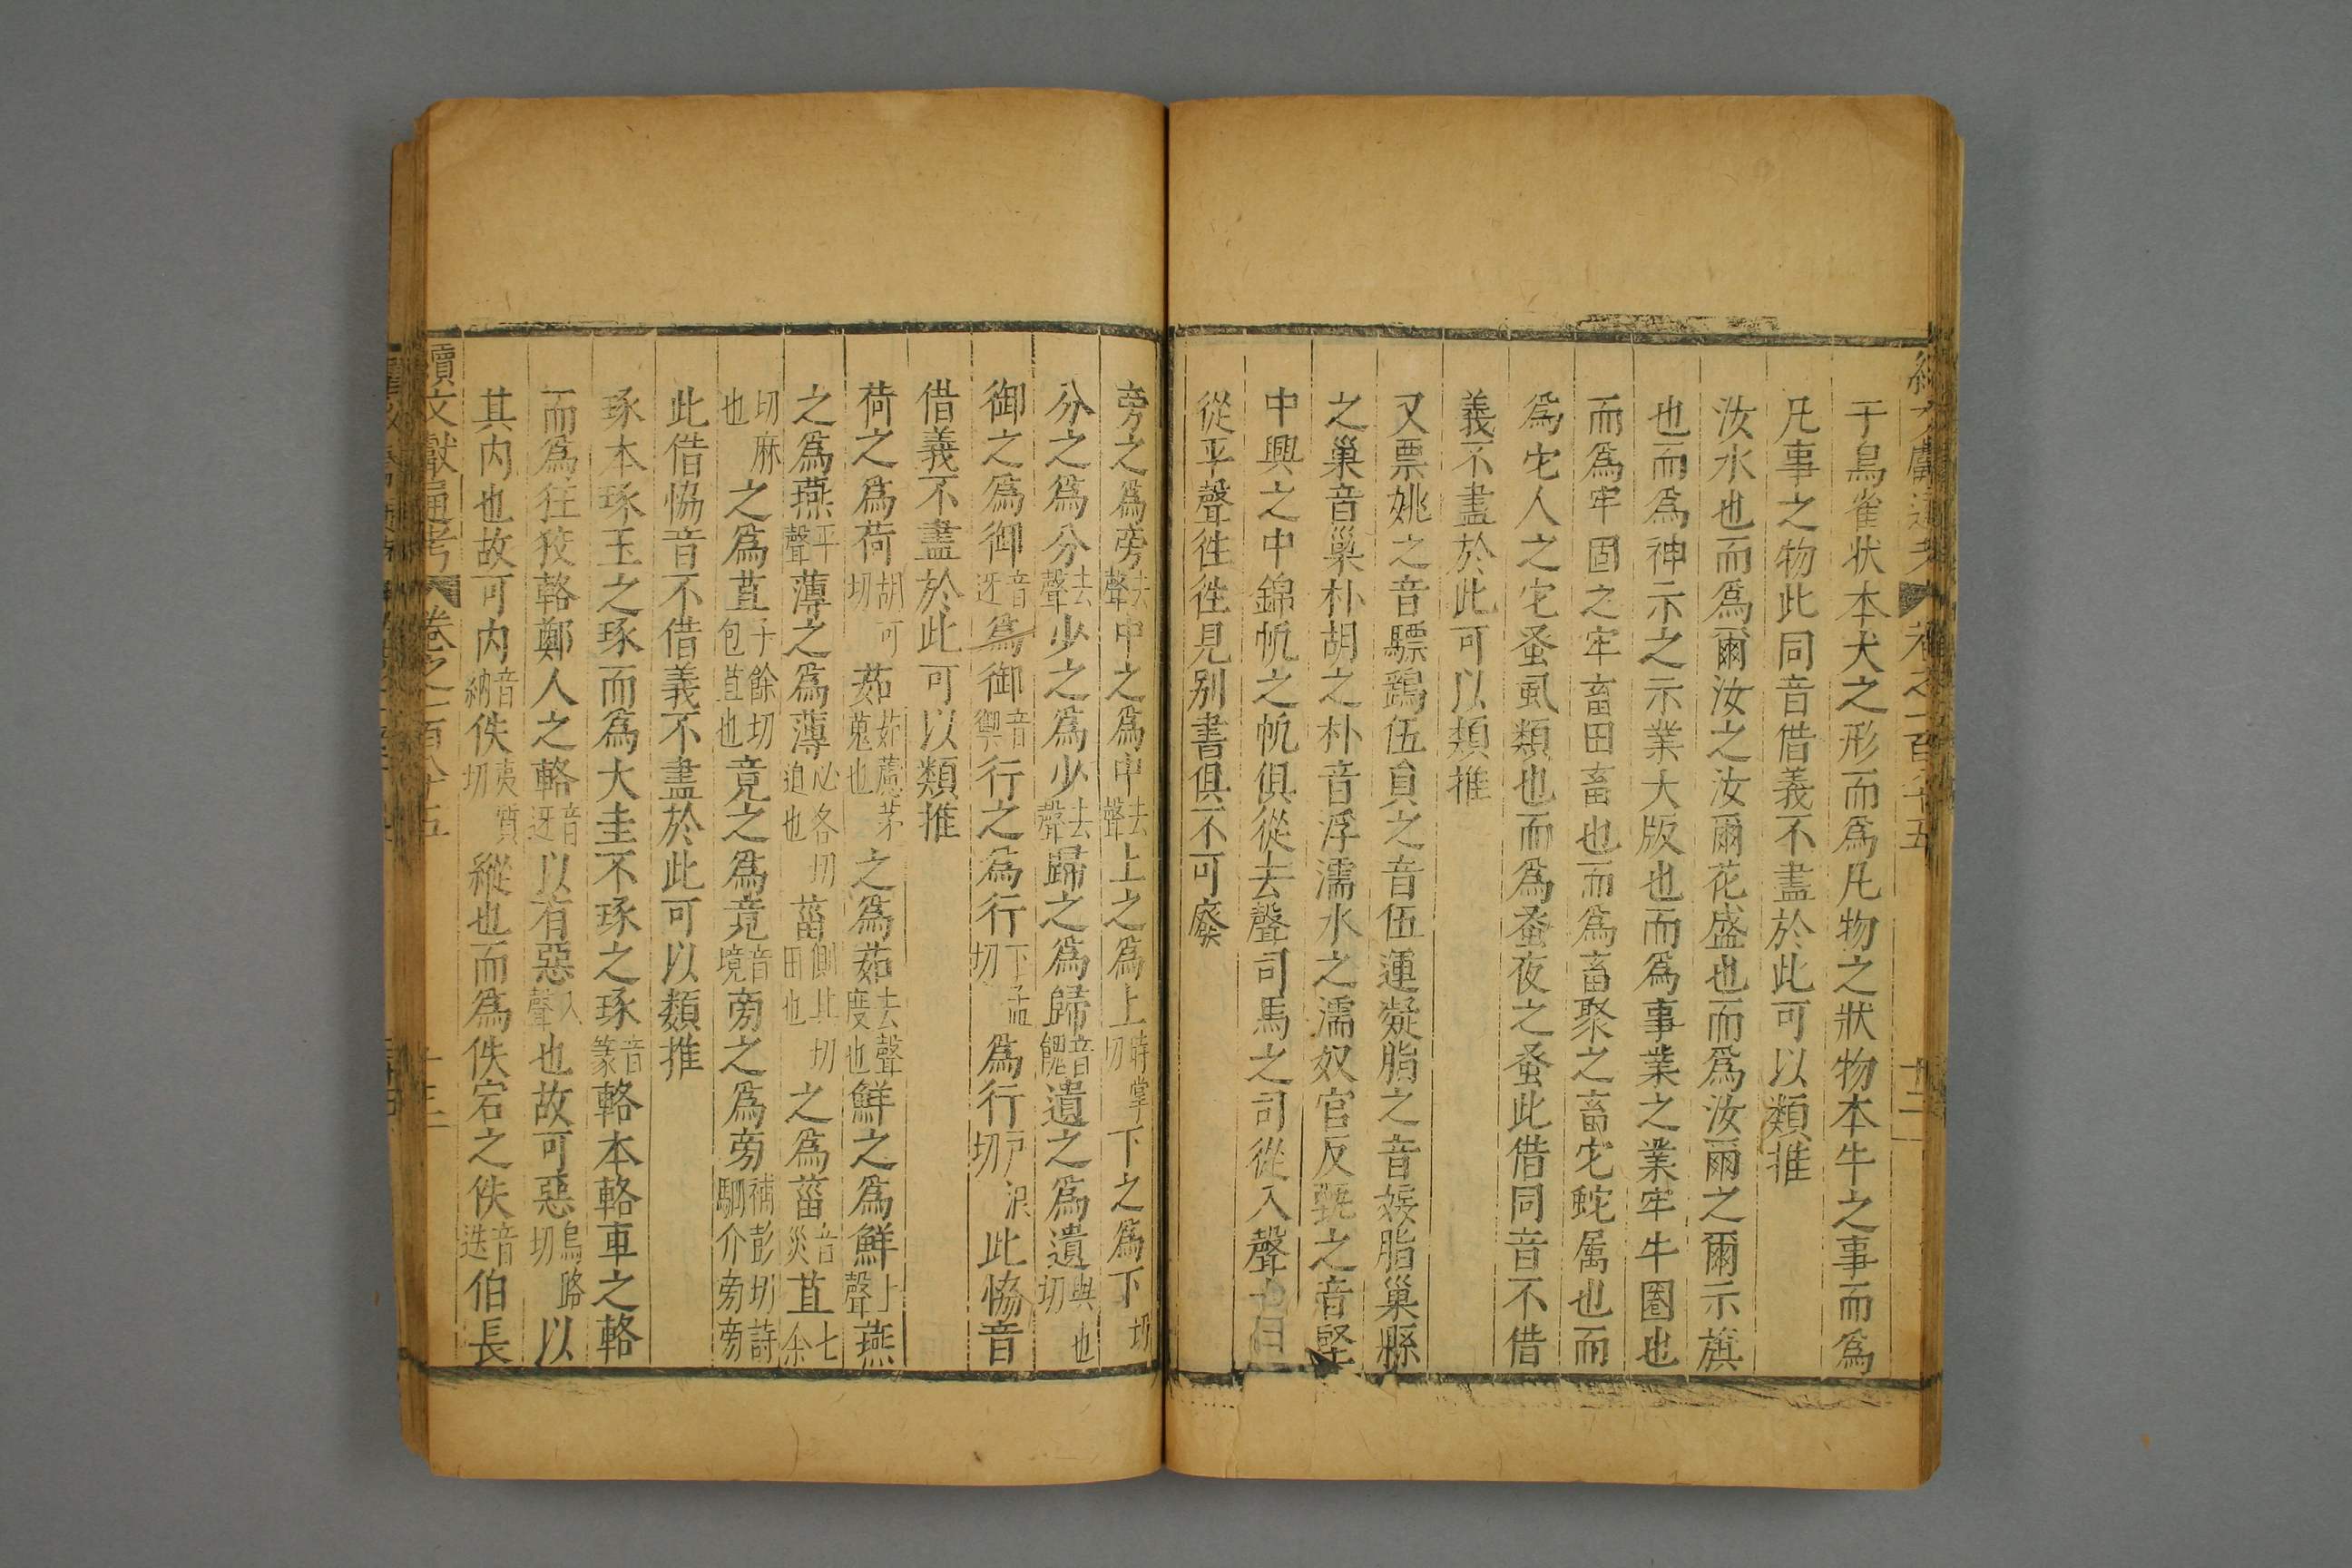 于鳥雀狀本犬之形而爲凡物之狀物本牛之事而爲
凡事之物此同音借義不盡於此可以類推
汝水也而爲爾汝之汝爾花盛也而爲汝爾之爾示旗
也而爲神示之示業大版也而爲事業之業牢牛圈也
而爲牢固之牢畜田畜也而爲畜聚之畜它蛇属也而
爲它人之它蚤虱類也而爲蚤夜之蚤此借同音不借
義不盡於此可以類推
又票姚之音驃鷂伍貟之音伍運凝脂之音娞脂巢縣
之巢音巢朴胡之朴音浮濡水之濡奴官反甄之音堅
中興之中錦帆之帆俱從去聲司馬之司從入聲
從平聲徃徃見别書俱不可廢
旁之爲旁去聲中之爲中去聲上之爲上時掌切下之爲下切
分之爲分去聲少之爲少去聲歸之爲歸音餽遺之爲遺與也切
御之爲御音迓爲御音禦行之爲行下孟切爲行戸浪切此恊音
借義不盡於此可以類推
荷之爲荷胡可切茹茹藘茅蒐也之爲茹去聲度也鮮之爲鮮上聲燕
之爲燕平聲薄之爲薄必各切迫也菑側其切田也之爲菑音災苴七余
切麻也之爲苴子餘切包苴也竟之爲竟音境旁之爲旁補彭切詩駟介旁旁
此借恊音不借義不盡於此可以類推
琢本琢玉之琢而爲大圭不琢之琢音篆輅本輅車之輅
而爲狂狡輅鄭人之輅音迓以有惡入聲也故可惡烏路切以
其内也故可内音納佚夷質切縱也而爲佚宕之佚音迭伯長
續文獻通考 卷之一百八十五 十三